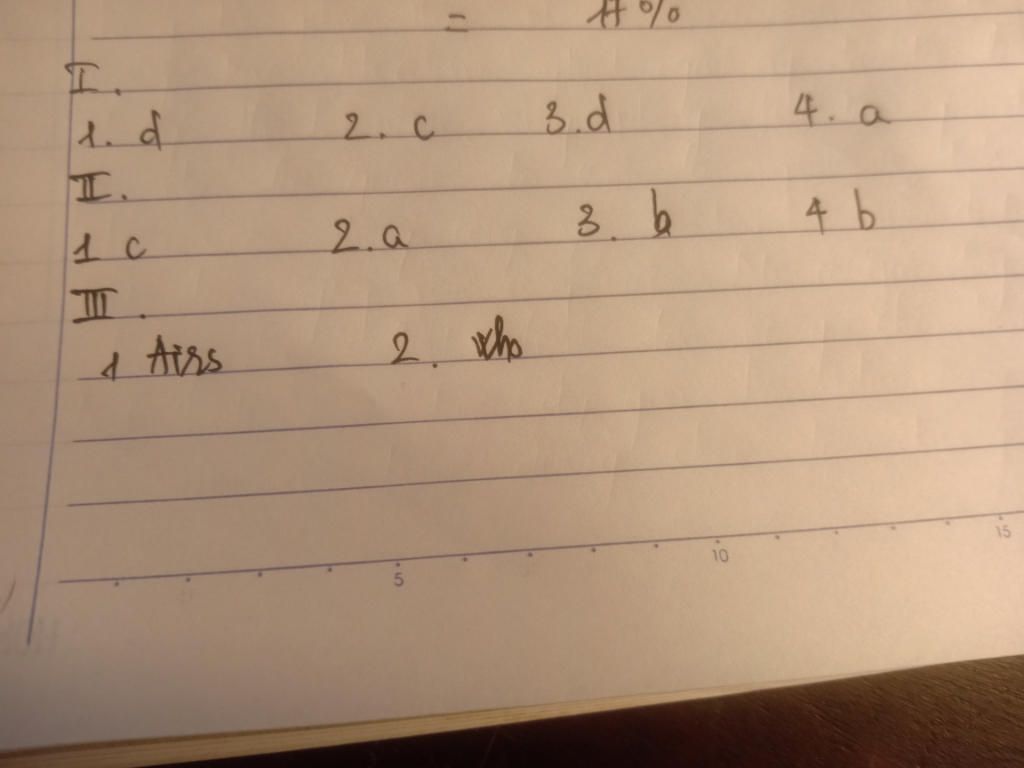 = 17%
I.
1. d 2. c 3. d 4. a
II.
1 c 2. a 3. b 4 b
III.
1 Airs 2. who
5 10 15